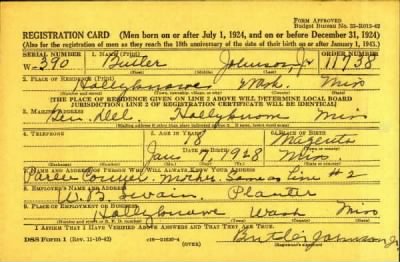 FORM APPROVED
Budget Bureau No. 33-R012-42
REGISTRATION CARD (Men born on or after July 1, 1924, and on or before December 31, 1924)
(Also for the registration of men as they reach the 18th anniversary of the date of their birth on or after January 1, 1943.)
SERIAL NUMBER 1. NAME (Print) ORDER NUMBER
W-390 Butler Johnson, Jr 11738
(First) (Middle) (Last)
2. PLACE OF RESIDENCE (Print)
Hollyknowe Wash Miss
[THE PLACE OF RESIDENCE GIVEN ON LINE 2 ABOVE WILL DETERMINE LOCAL BOARD
JURISDICTION; LINE 2 OF REGISTRATION CERTIFICATE WILL BE IDENTICAL]
3. MAILING ADDRESS
Gen. Del. Hollyknowe Miss
4. TELEPHONE 5. AGE IN YEARS 6. PLACE OF BIRTH
18 Magenta
DATE OF BIRTH
Jan Miss
7. NAME AND ADDRESS OF PERSON WHO WILL ALWAYS KNOW YOUR ADDRESS
Same as line #2
8. EMPLOYER'S NAME AND ADDRESS
W.B. Swain Planter
9. PLACE OF EMPLOYMENT OR BUSINESS
Hollyknowe Wash Miss
I AFFIRM THAT I HAVE VERIFIED ABOVE ANSWERS AND THAT THEY ARE TRUE.
DSS Form 1 (Rev. 11-16-42) (OVER) Butler Johnson Jr